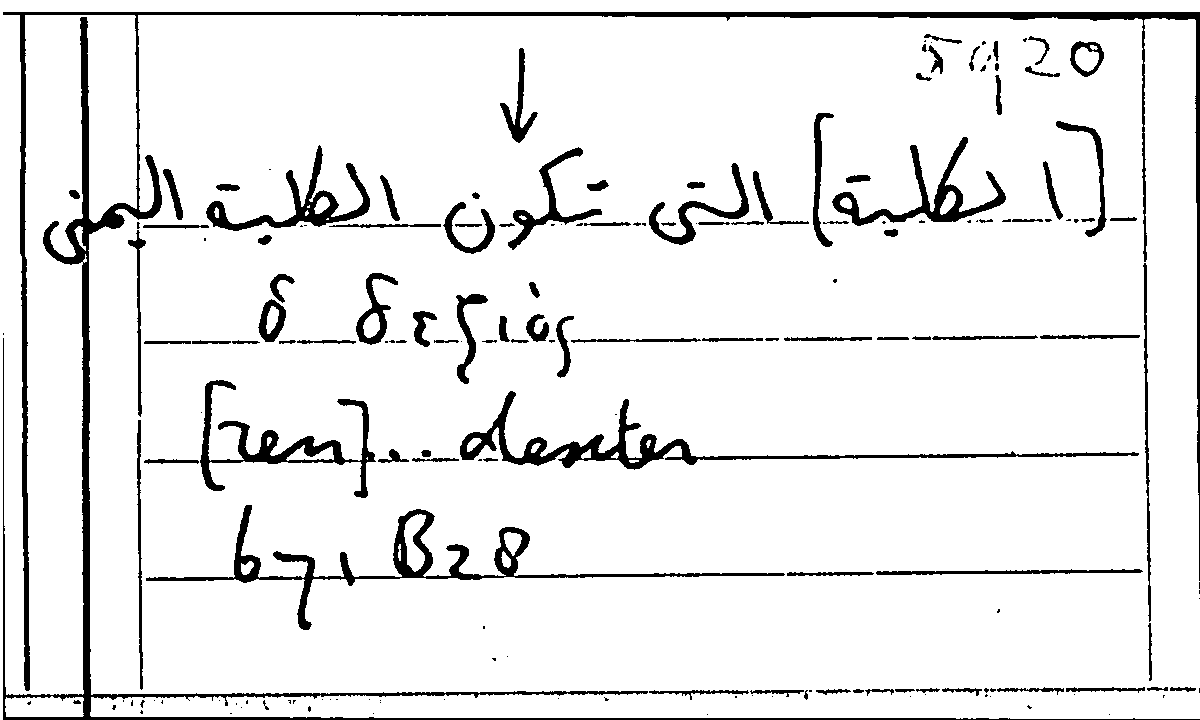 5920
↓
[الكلية] التى تكون الكلية اليمنى
ὁ δεξιός
[ren]... dexter
671 B28